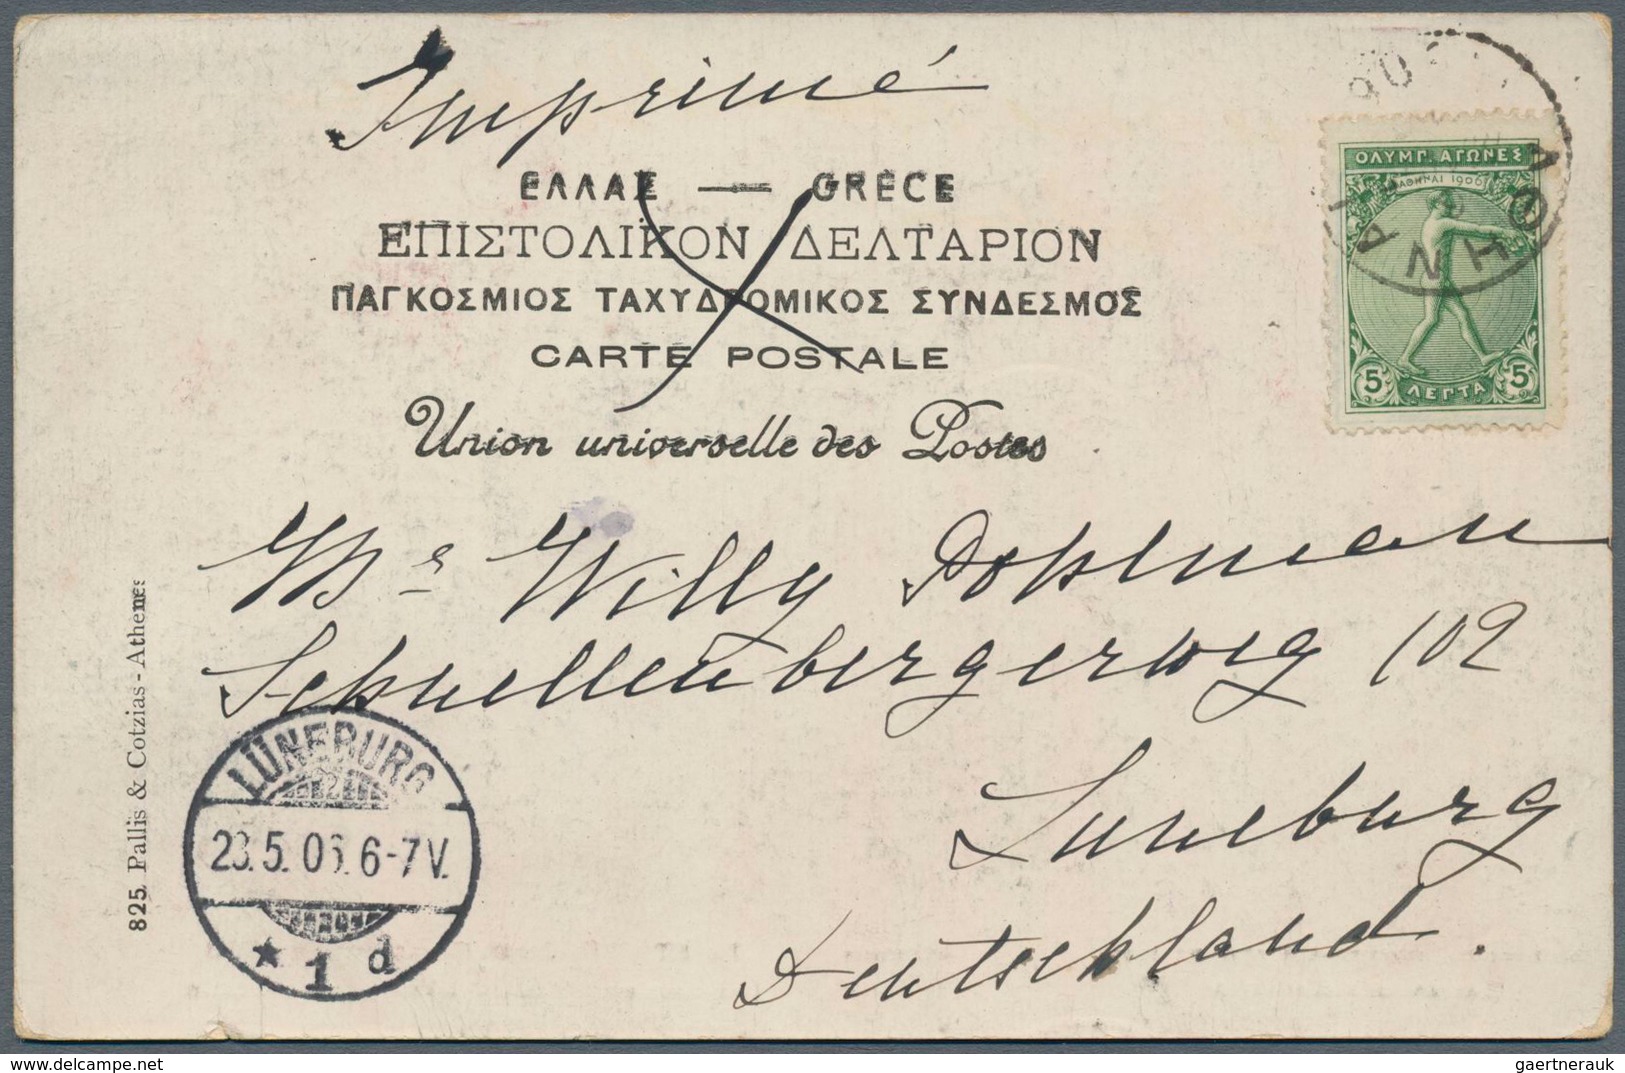 Imprimé
ΕΛΛΑΣ — GRÈCE
ΕΠΙΣΤΟΛΙΚΟΝ ΔΕΛΤΑΡΙΟΝ
ΠΑΓΚΟΣΜΙΟΣ ΤΑΧΥΔΡΟΜΙΚΟΣ ΣΥΝΔΕΣΜΟΣ
CARTE POSTALE
Union universelle des Postes
ΟΛΥΜΠ. ΑΓΩΝΕΣ
ΑΘΗΝΑΙ 1906
5 ΛΕΠΤΑ 5
ΑΘΗΝΑΙ
Willy Pohlman
Schnellenbergerweg 102
Luneburg
Deutschland.
825. Pallis & Cotzias - Athenes
LÜNEBURG
23.5.06.6-7V.
* 1 d
delcampe.net
gaertnerauk